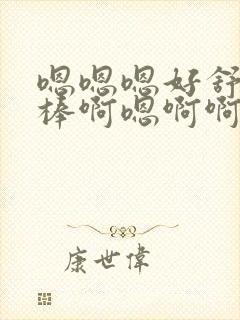 嗯嗯嗯好舒
棒啊嗯啊啊
康世偉